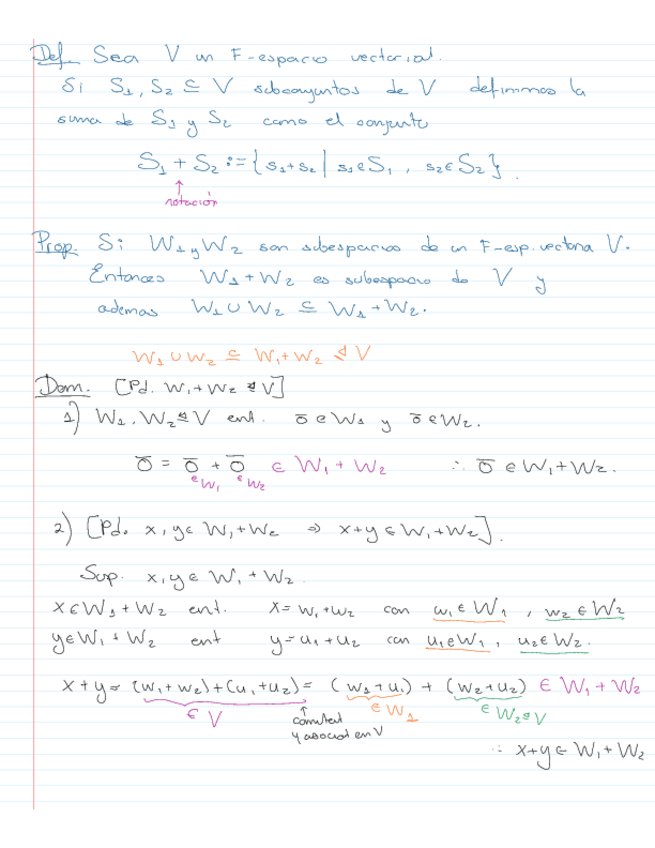 Def. Sea V un F-espacio vectorial.
Si S₁, S₂ ⊆ V subconjuntos de V definimos la
suma de S₁ y S₂ como el conjunto
S₁ + S₂ := { s₁+s₂ | s₁∈S₁ , s₂∈S₂ }.
↑
notación
Prop. Si W₁ y W₂ son subespacios de un F-esp. vectorial V.
Entonces W₁+W₂ es subespacio de V y
ademas W₁ ∪ W₂ ⊆ W₁+W₂.
W₁ ∪ W₂ ⊆ W₁+W₂ ⊴ V
Dem. [Pd. W₁+W₂ ⊴ V]
1) W₁, W₂ ⊴ V ent. o̅ ∈ W₁ y o̅ ∈ W₂.
o̅ = o̅ + o̅ ∈ W₁ + W₂ ∴ o̅ ∈ W₁+W₂.
∈W₁ ∈W₂
2) [Pd. x,y ∈ W₁+W₂ ⇒ x+y ∈ W₁+W₂].
Sup. x,y ∈ W₁ + W₂.
x∈W₁+W₂ ent. x = w₁+w₂ con w₁∈W₁ , w₂∈W₂
y∈W₁+W₂ ent y = u₁+u₂ con u₁∈W₁, u₂∈W₂.
x+y = (w₁+w₂)+(u₁+u₂) = (w₁+u₁) + (w₂+u₂) ∈ W₁+W₂
∈ V ↑ ∈ W₁ ∈ W₂⊴V
conmutad
y asociad en V
∴ x+y ∈ W₁+W₂